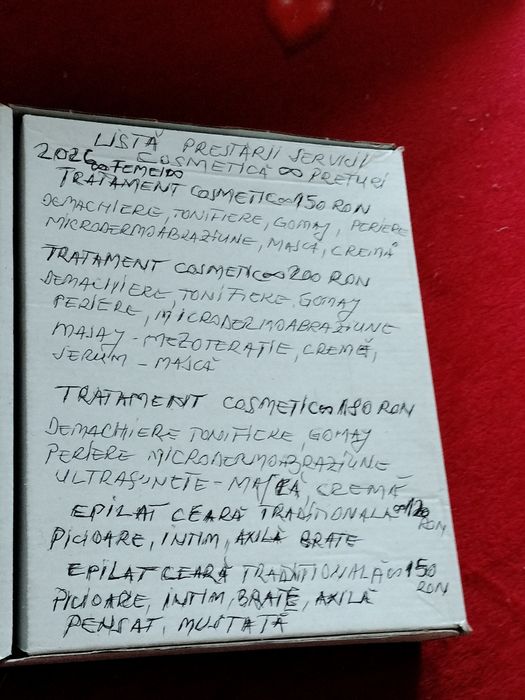 LISTĂ PRESTĂRII SERVICII
2026 ∞ FEMEI ∞ COSMETICĂ ∞ PREȚURI
TRATAMENT COSMETIC ∞ 150 RON
DEMACHIERE, TONIFIERE, GOMAJ, PERIERE
MICRODERMOABRAZIUNE, MASCĂ, CREMĂ
TRATAMENT COSMETIC ∞ 200 RON
DEMACHIERE, TONIFIERE, GOMAY
PERIERE, MICRODERMOABRAZIUNE
MASAY - MEZOTERAȚIE, CREMĂ,
SERUM - MASCĂ
TRATAMENT COSMETIC ∞ 180 RON
DEMACHIERE TONIFIERE, GOMAY
PERIERE MICRODERMOABRAZIUNE
ULTRASUNETE - MASCĂ, CREMĂ
EPILAT CEARĂ TRADIȚIONALĂ ∞ 120 RON
PICIOARE, INTIM, AXILĂ BRAȚE
EPILAT CEARĂ TRADIȚIONALĂ ∞ 150 RON
PICIOARE, INTIM, BRAȚE, AXILĂ
PENSAT, MUSTAȚĂ